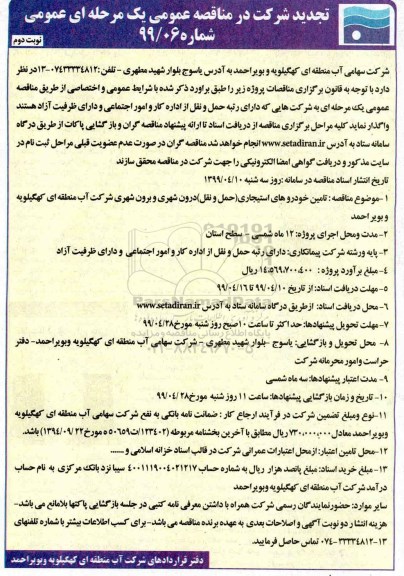 تجدید شرکت در مناقصه عمومی یک مرحله ای عمومی
شماره ۹۹/۰۶
نوبت دوم
شرکت سهامی آب منطقه ای کهگیلویه و بویراحمد به آدرس یاسوج بلوار شهید مطهری - تلفن: ۰۷۴۳۳۳۳۴۸۱۲-۱۳ در نظر
دارد با توجه به قانون برگزاری مناقصات پروژه زیر را طبق برآورد ذکر شده با شرایط عمومی و اختصاصی از طریق مناقصه
عمومی یک مرحله ای به شرکت هایی که دارای رتبه حمل و نقل از اداره کار و امور اجتماعی و دارای ظرفیت آزاد هستند
واگذار نماید کلیه مراحل برگزاری مناقصه از دریافت اسناد تا ارائه پیشنهاد مناقصه گران و بازگشایی پاکات از طریق درگاه
سامانه ستاد به آدرس www.setadiran.ir انجام خواهد شد مناقصه گران در صورت عدم عضویت قبلی مراحل ثبت نام در
سایت مذکور و دریافت گواهی امضا الکترونیکی را جهت شرکت در مناقصه محقق سازند
تاریخ انتشار اسناد مناقصه در سامانه :روز سه شنبه ۱۳۹۹/۰۴/۱۰
۱-موضوع مناقصه : تامین خودرو های استیجاری(حمل و نقل)درون شهری و برون شهری شرکت آب منطقه ای کهگیلویه
و بویر احمد
۲- مدت ومحل اجرای پروژه: ۱۲ ماه شمسی - سطح استان
۳- پایه ورشته شرکت پیمانکاری: دارای رتبه حمل و نقل از اداره کار و امور اجتماعی و دارای ظرفیت آزاد
۴- مبلغ برآورد پروژه : ۱۴،۵۶۹،۷۰۰،۴۰۰ ریال
۵- مهلت دریافت اسناد: از تاریخ ۹۹/۰۴/۱۰ تا ۹۹/۰۴/۱۶
۶- محل دریافت اسناد: ازطریق درگاه سامانه ستاد به آدرس www.setadiran.ir
۷- مهلت تحویل پیشنهادها: حداکثر تا ساعت ۱۰صبح روز شنبه مورخ۹۹/۰۴/۲۸
۸- محل تحویل و بازگشایی: یاسوج -بلوار شهید مطهری - شرکت آب منطقه ای کهگیلویه وبویراحمد- دفتر
حراست وامور محرمانه شرکت
۹- مدت اعتبار پیشنهادها: سه ماه شمسی
۱۰- تاریخ و زمان بازگشایی پیشنهادها: ساعت ۱۱ روز شنبه مورخ۹۹/۰۴/۲۸
۱۱-نوع ومبلغ تضمین شرکت در فرآیند ارجاع کار : ضمانت نامه بانکی به نفع شرکت سهامی آب منطقه ای کهگیلویه
وبویراحمد معادل ۷۳۰،۰۰۰،۰۰۰ ریال مطابق با آخرین بخشنامه مربوطه (۱۲۳۴۰۲/ت۵۰۶۵۹ ه مورخ۱۳۹۴/۰۹/۲۲) باشد.
۱۲-محل تامین اعتبار: ازمحل اعتبارات عمرانی شرکت در قالب اسناد خزانه اسلامی و .......
۱۳-مبلغ خرید اسناد: مبلغ پانصد هزار ریال به شماره حساب ۴۰۰۱۱۱۹۰۰۴۰۲۱۲۱۷ سیبا نزد بانک مرکزی به نام حساب
درآمد شرکت آب منطقه ای کهگیلویه وبویراحمد
سایر موارد: حضور نمایندگان رسمی شرکت همراه با داشتن معرفی نامه کتبی در جلسه بازگشایی پاکتها بلامانع می باشد-
هزینه انتشار دو نوبت آگهی و اصلاحات بعدی به عهده برنده مناقصه می باشد- برای کسب اطلاعات بیشتر با شماره تلفنهای
۱۳-۰۷۴-۳۳۳۳۴۸۱۲ تماس حاصل فرمایید.
دفتر قراردادهای شرکت آب منطقه ای کهگیلویه وبویراحمد